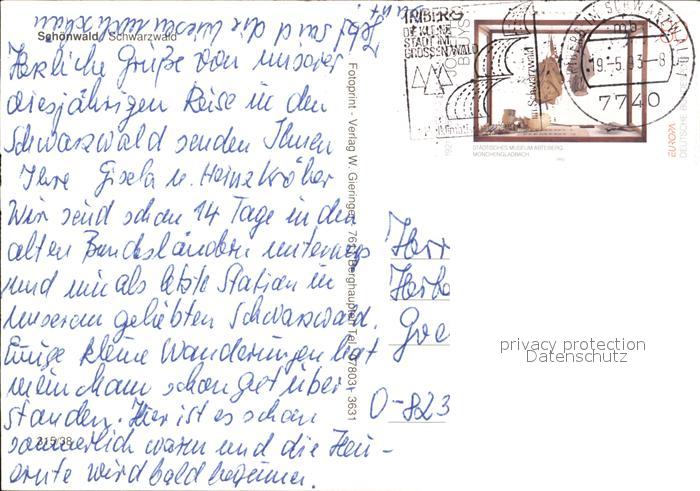 Schönwald / Schwarzwald
Herzliche Grüße von unserer
diesjährigen Reise in den
Schwarzwald senden Ihnen
Ihre Gisela u. Heinz Kröber
Wir sind schon 14 Tage in den
alten Bundesländern unterwegs
und nun als letzte Station in
unserem geliebten Schwarzwald.
Einige kleine Wanderungen hat
mein Mann schon gut über
standen. Hier ist es schon
sommerlich warm und die Heu-
ernte wird bald beginnen.
315/38
Fotoprint - Verlag W. Gieringer, 7611 Berghaupten Tel. 07803 - 3631
TRIBERG
DIE KLEINE
STADT IM
GROSSEN WALD
im Schwarzwald
TRIBERG IM SCHWARZWALD 1
mb
19.-5.93-8
7740
JOSEPH BEUYS
1921
STÄDTISCHES MUSEUM ABTEIBERG
MÖNCHENGLADBACH
1993
EUROPA
DEUTSCHE BUNDESPOST
Herr
O-823
privacy protection
Datenschutz